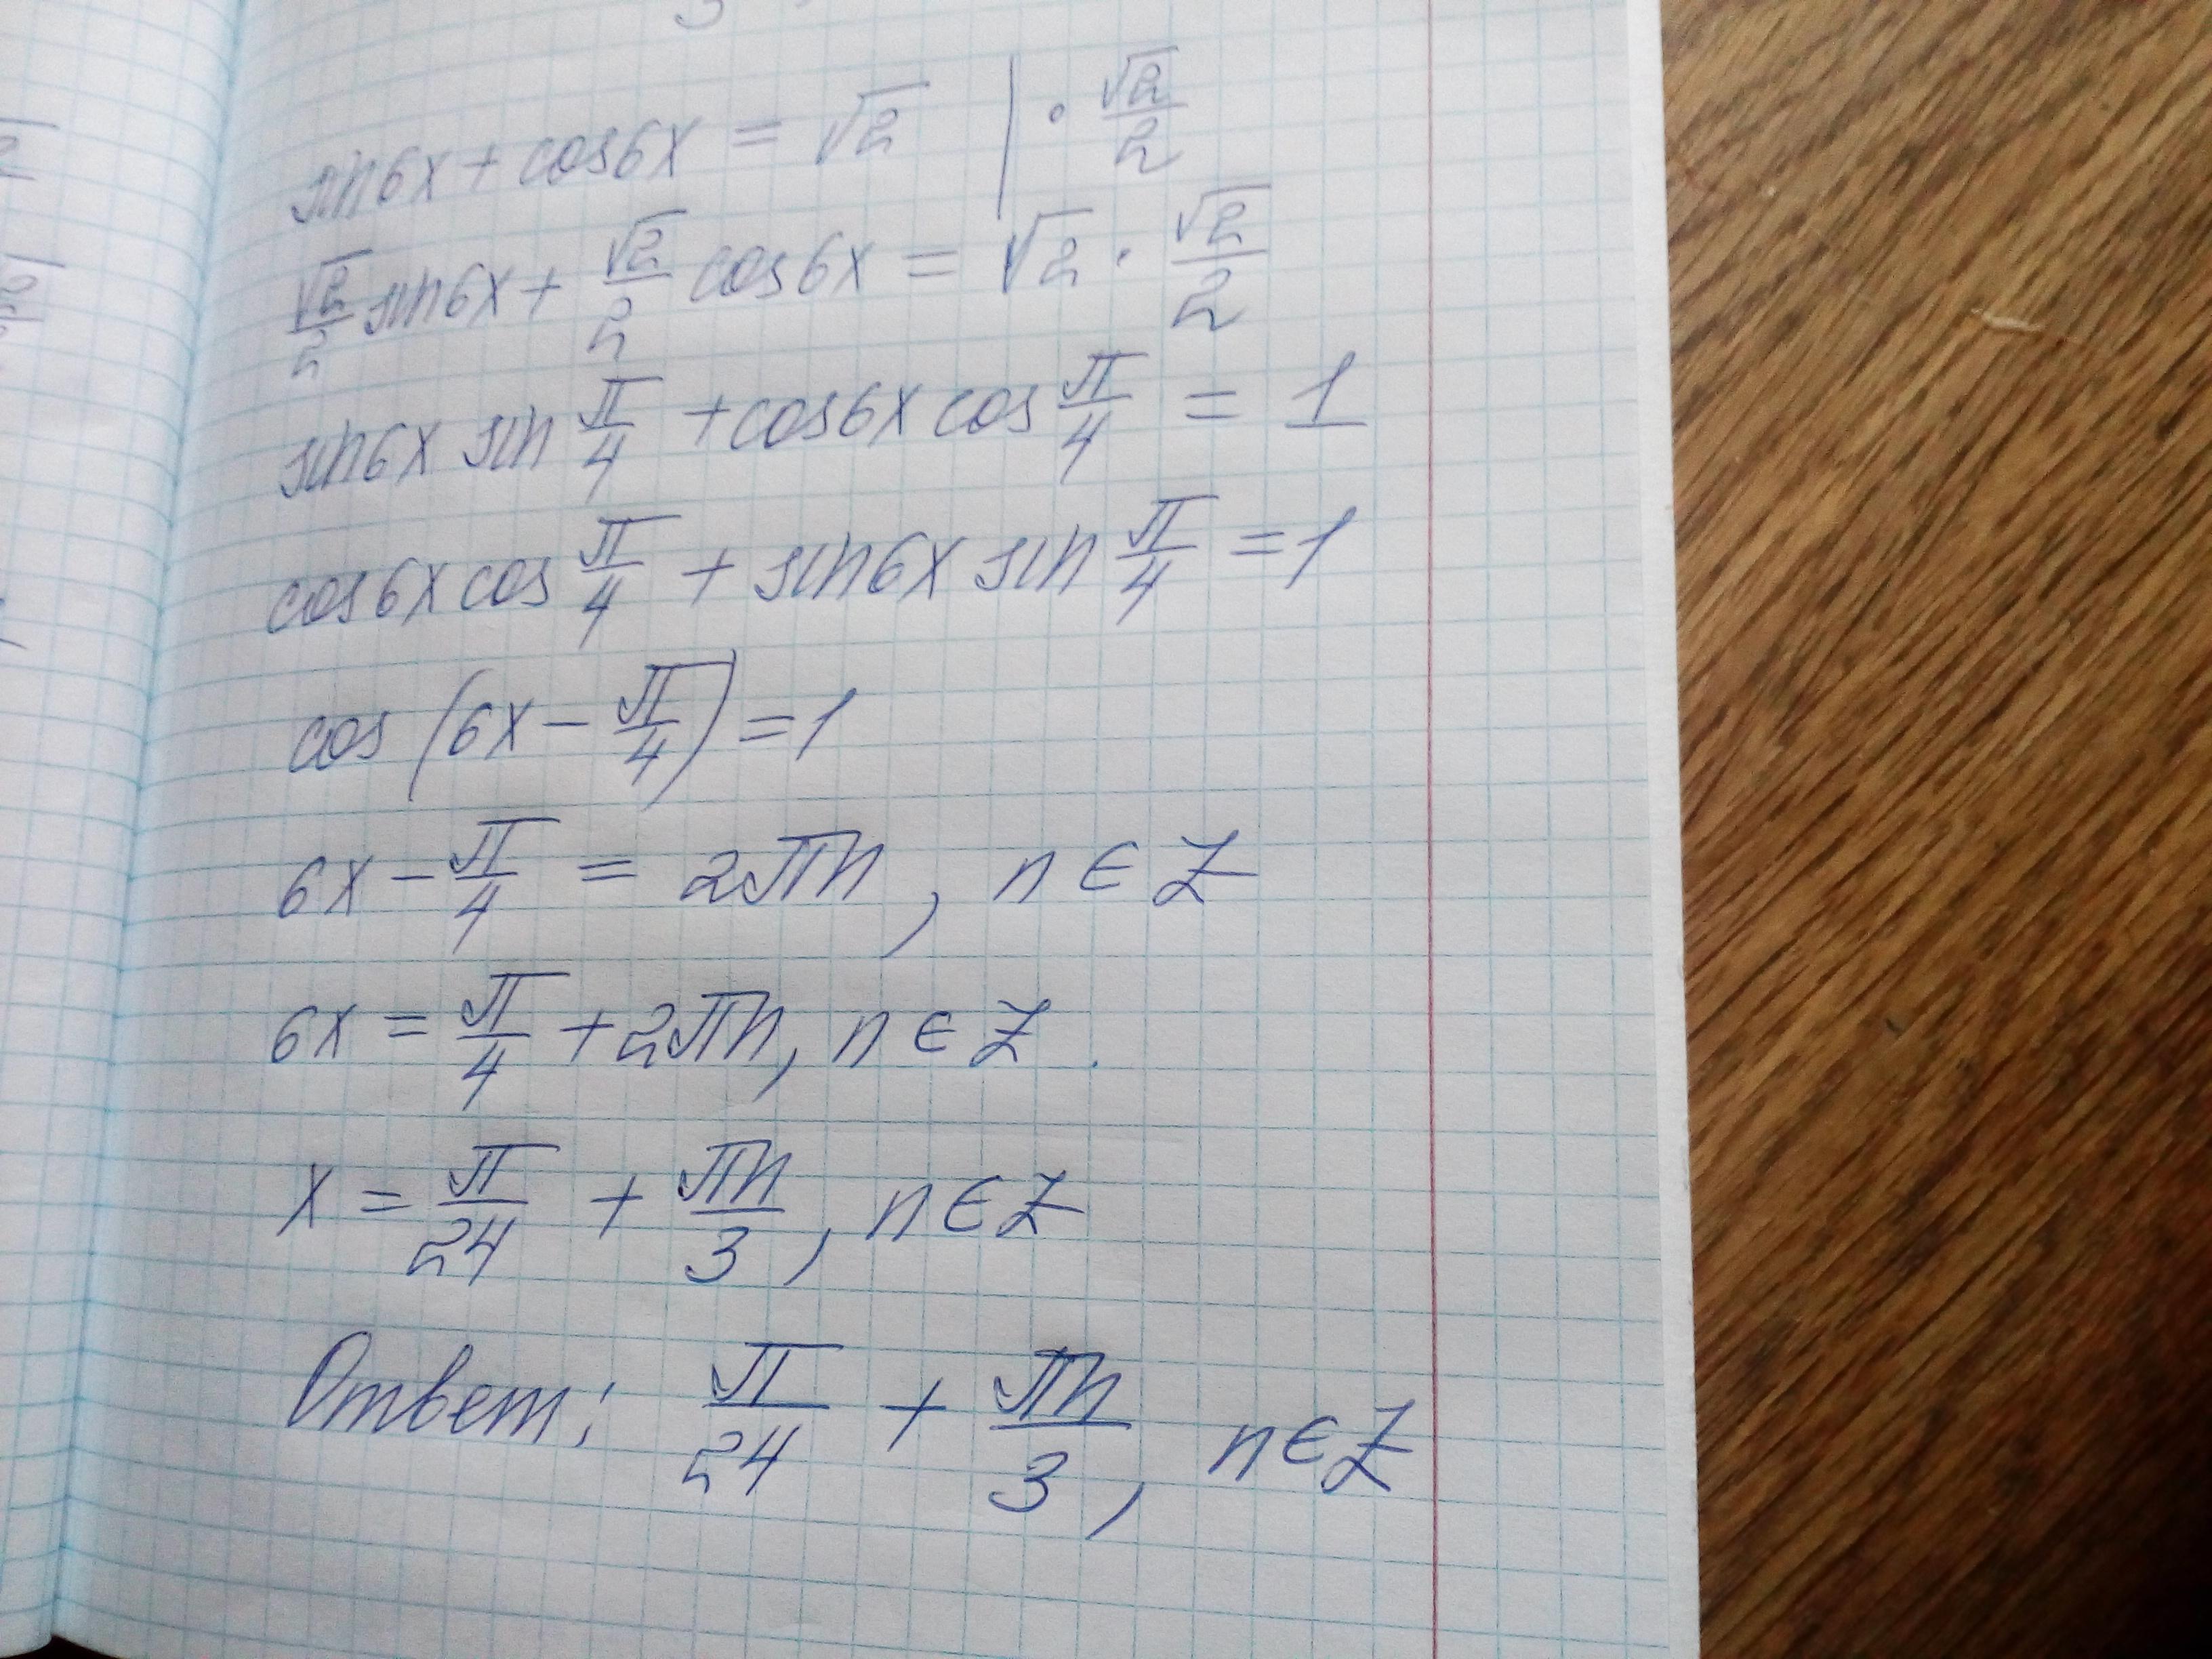 sin6x + cos6x = √2 | · √2/2
√2/2 sin6x + √2/2 cos6x = √2 · √2/2
sin6x sin π/4 + cos6x cos π/4 = 1
cos6x cos π/4 + sin6x sin π/4 = 1
cos (6x − π/4) = 1
6x − π/4 = 2πn, n ∈ Z
6x = π/4 + 2πn, n ∈ Z.
x = π/24 + πn/3, n ∈ Z
Ответ: π/24 + πn/3, n ∈ Z